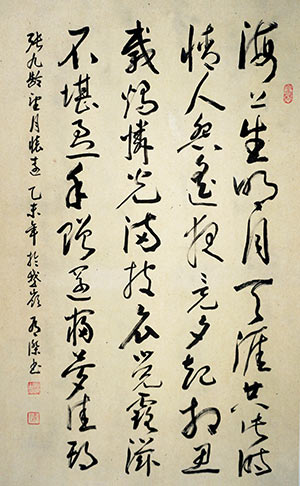 海上生明月天涯共此時
情人怨遙夜竟夕起相思
滅燭憐光滿披衣覺露滋
不堪盈手贈還寢夢佳期
張九齡望月懷遠 乙未年於嶺 傑书